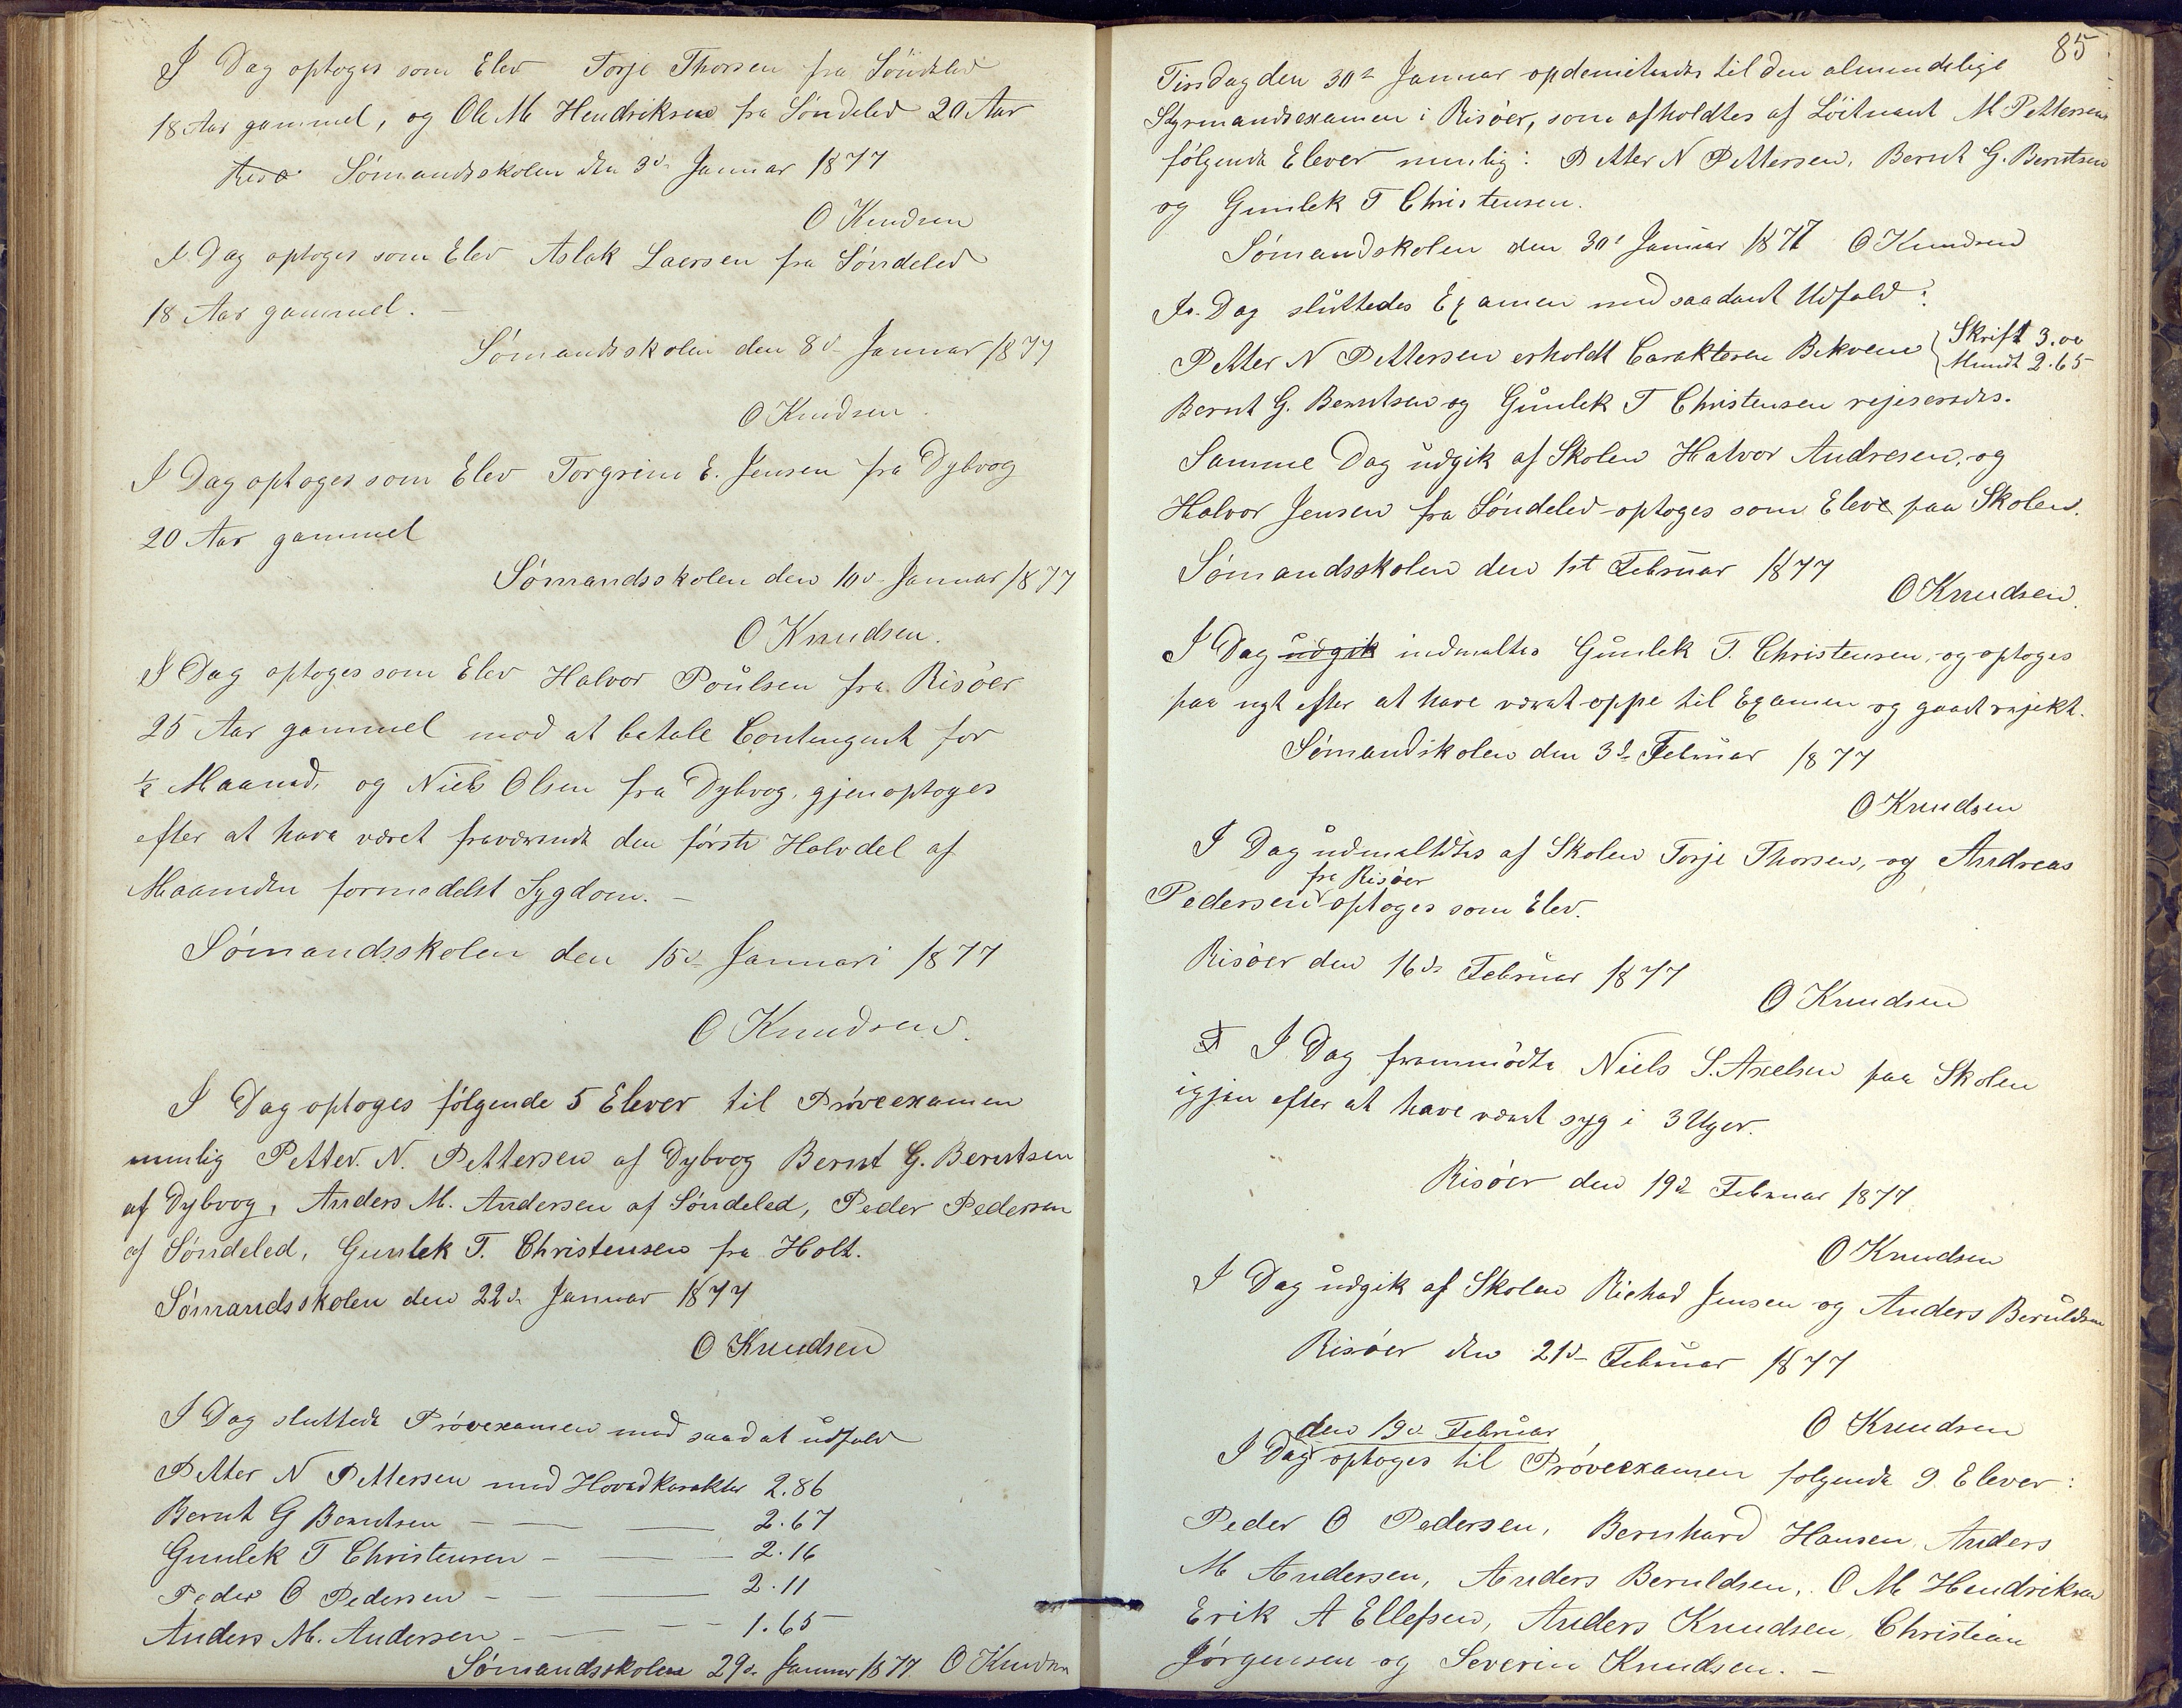 I Dag optoges som Elev Torje Thorsen fra Söndeled
18 Aar gammel, og Ole M Hendriksen fra Söndeled 20 Aar
Risø Sömandsskolen den 3d Januar 1877
O Knudsen
I Dag optoges som Elev Aslak Laersen fra Söndeled
18 Aar gammel. –
Sömandsskolen den 8d Januar 1877
O Knudsen.
I Dag optoges som Elev Torgrim E. Jensen fra Dybvog
20 Aar gammel
Sömandsskolen den 10d Januar 1877
O Knudsen.
I Dag optoges som Elev Halvor Poulsen fra Risöer
25 Aar gammel mod at betale Contengent for
½ Maaned, og Niels Olsen fra Dybvog, gjenoptoges
efter at have været fraværende den förste Halvdel af
Maaneden formedelst Sygdom. –
Sömandsskolen den 15d Januari 1877
O Knudsen.
I Dag optoges fölgende 5 Elever til Pröveexamen
nemlig Petter. N. Pettersen af Dybvog Bernt G. Berntsen
af Dybvog, Anders M. Andersen af Söndeled, Peder Pedersen
af Söndeled, Gunlek T. Christensen fra Holt.
Sömandsskolen den 22d Januar 1877
O Knudsen
I Dag sluttede Prövexamen med saadat udfald
Petter N Pettersen med Hovedkarakter 2.86
Bernt G Berntsen – — — 2.67
Gunlek T Christensen – — – 2.16
Peder O Pedersen – — — 2.11
Anders M. Andersen – — – – 1.65
Sömandsskolen 29d Januar 1877 O Knudsen
85
Tirsdag den 30d Januar opdemiterades til den almindelige
Styrmandsexamen i Risöer, som afholdtes af Löitnant M Pettersen
fölgende Elever nemlig: Petter N Pettersen, Bernt G. Berntsen
og Gunlek T Christensen.
Sömandskolen den 30d Januar 1877 O Knudsen
I. Dag sluttedes Examen med saadant Udfald:
Petter N Pettersen erholdt Carakteren Bekvem { Skrift 3.00
Mundt 2.65
Bernt G. Berntsen og Gunlek T Christensen rejeseredes.
Samme Dag udgik af Skolen Halvor Andresen, og
Halvor Jensen fra Söndeled optoges som Eleve paa Skolen.
Sömandsskolen den 1st Februar 1877
O Knudsen.
I Dag udgik indmeltes Gunlek T. Christensen, og optoges
paa nyt efter at have værat oppe til Examen og gaaet rejekt.
Sömandskolen den 3d Februar 1877
O Knudsen
I Dag udmeltdtes af Skolen Torje Thorsen, og Andreas
fra Risöer
Pedersen optoges som Elev.
Risöer den 16d Februar 1877
O Knudsen
I Dag frammödte Niels S. Axelsen paa Skolen
igjen efter at have værat syg i 3 Uger.
Risöer den 19d Februar 1877
O Knudsen
I Dag udgik af Skolen Richad Jensen og Anders Beruldsen
Risöer den 21d Februar 1877
O Knudsen
den 19d Februar
I Dag optoges til Pröveexamen folgende 9. Elever:
Peder O Pedersen, Bernhard Hansen, Anders
M Andersen, Anders Beruldsen, O M Hendriksen
Erik A Ellefsen, Anders Knudsen, Christian
Jörgensen og Severin Knudsen. –